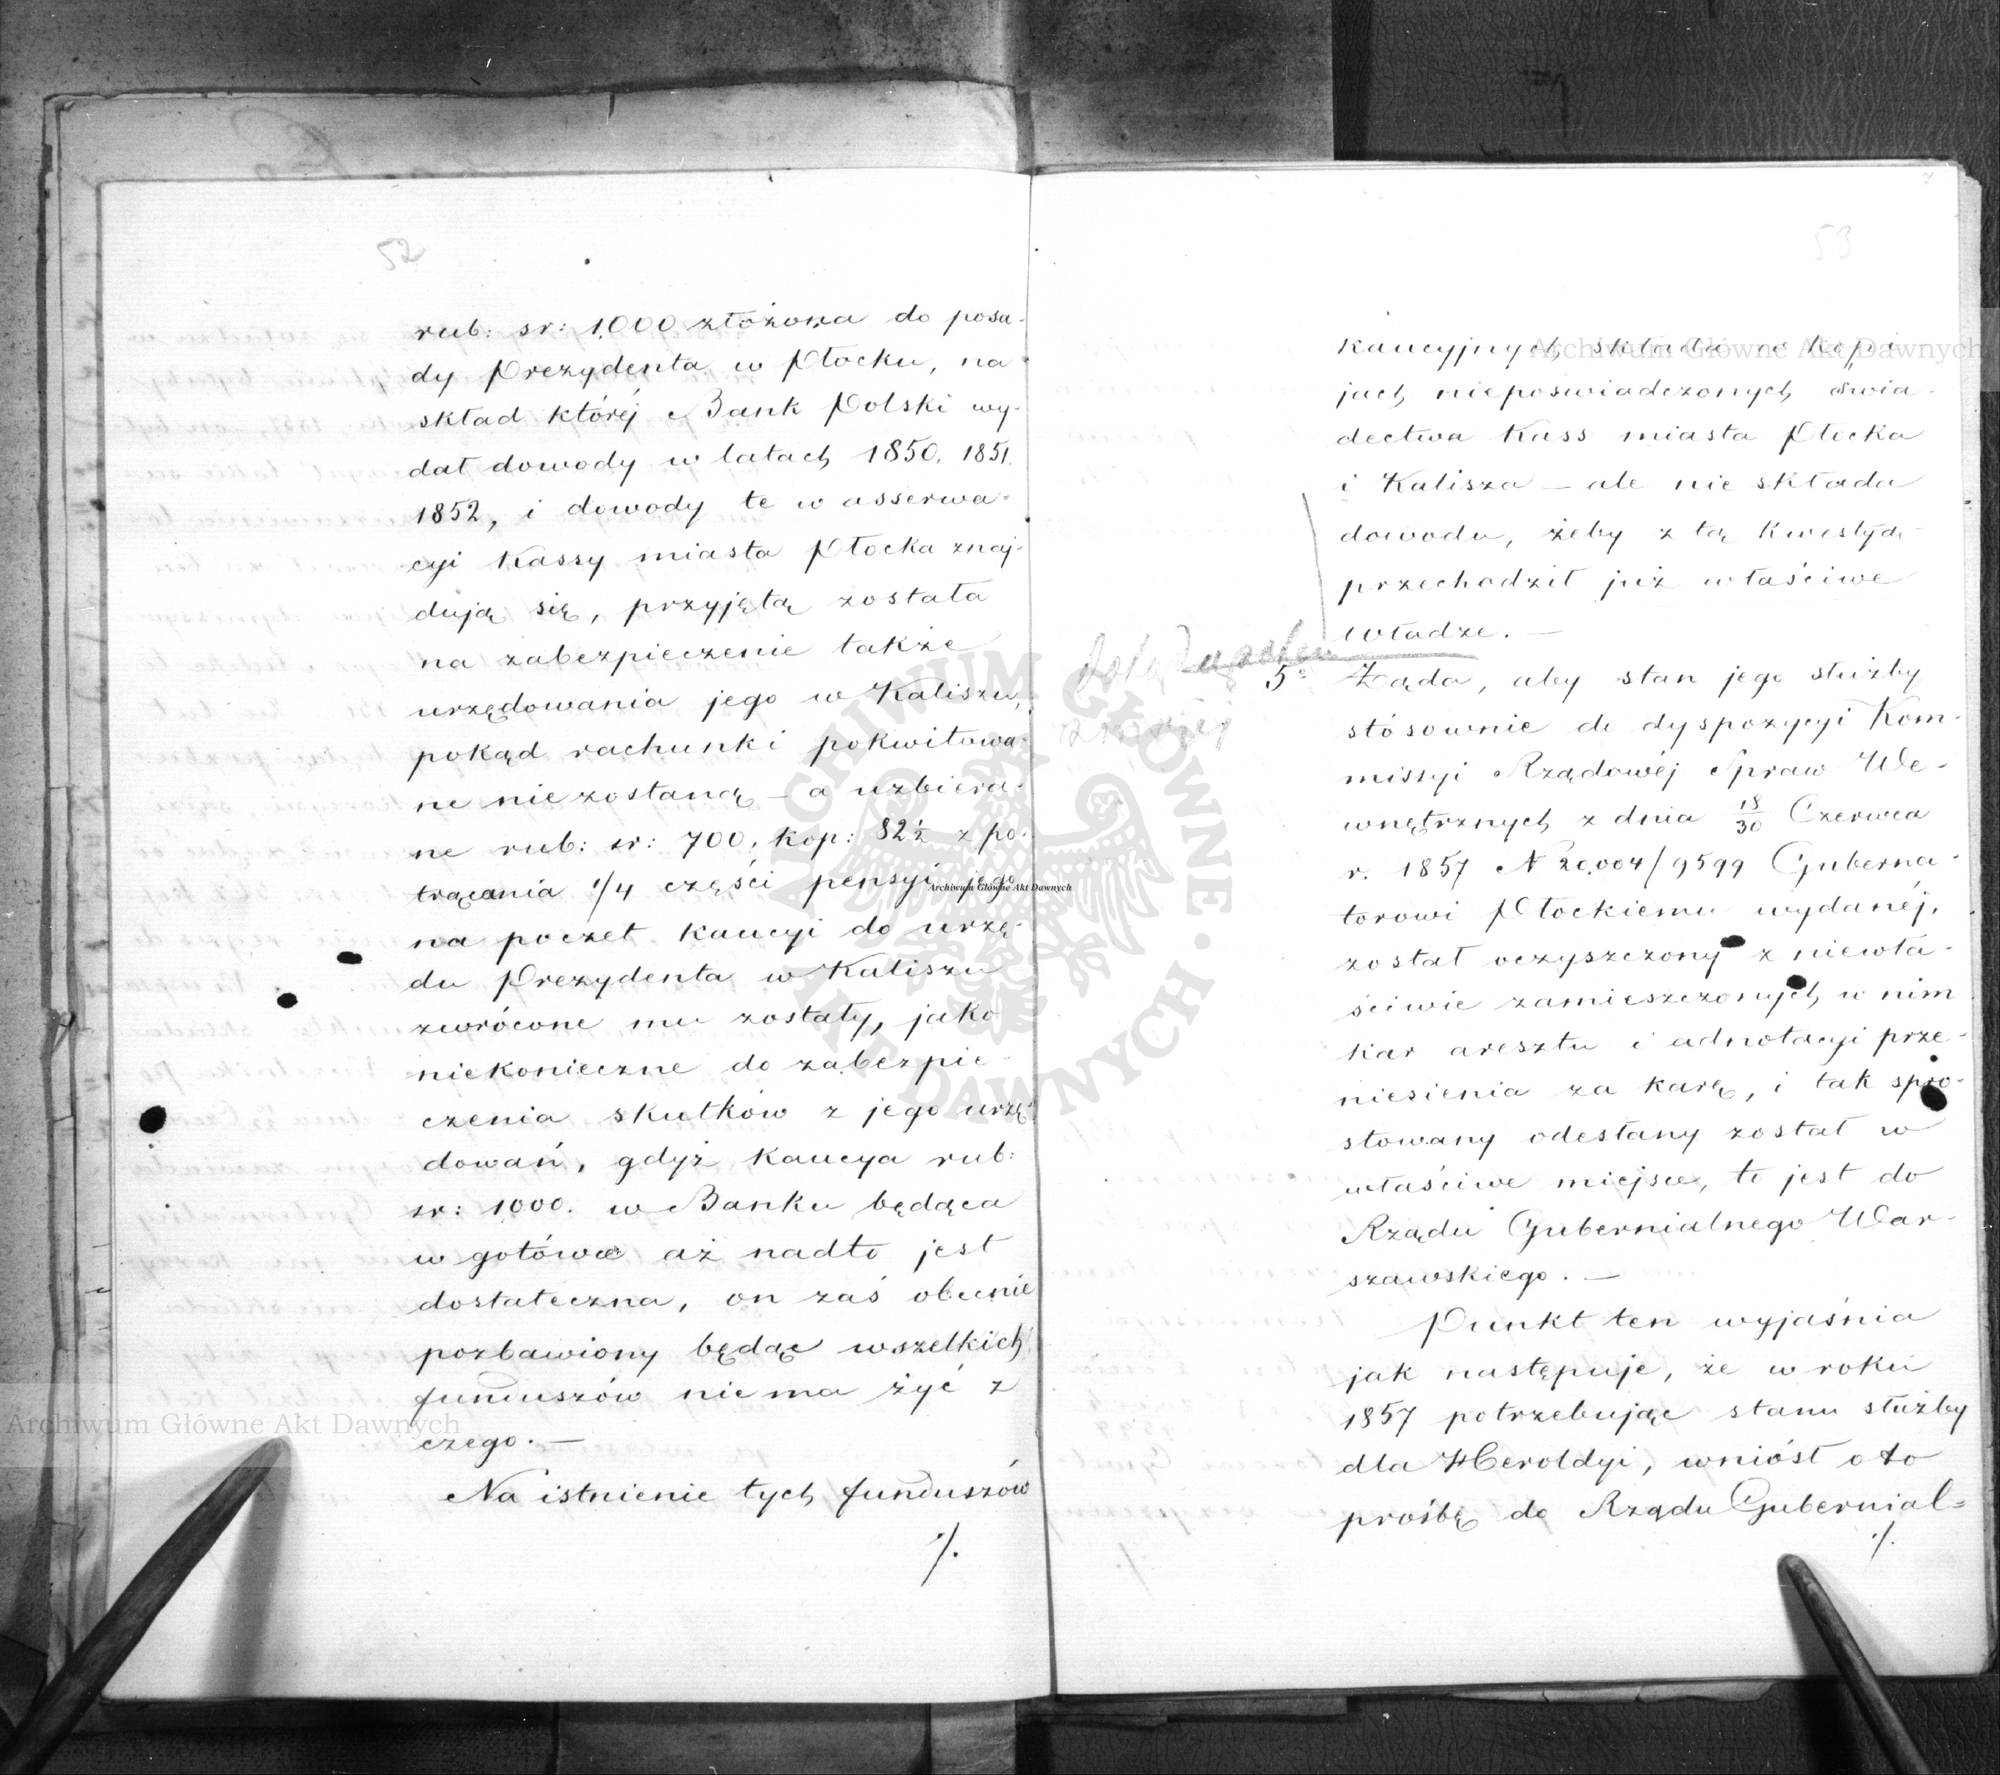 52
rub: sr: 1,000 złożona do posa-
dy Prezydenta w Płocku, na
skład któréj Bank Polski wy-
dał dowody w latach 1850, 1851,
1852, i dowody te w asserwa-
cyi Kassy miasta Płocka znaj-
dują się, przyjętą została
na zabezpieczenie także
urzędowania jego w Kaliszu,
pokąd rachunki pokwitowa-
ne nie zostaną – a uzbiera-
ne rub: sr: 700, kop: 82½ z po-
trącania 1/4 części pensyi jego
na poczet kaucyi do urzę-
du Prezydenta w Kaliszu
zwrócone mu zostały, jako
niekonieczne do zabezpie-
czenia skutków z jego urzę-
dowań, gdyż kaucya rub:
sr: 1,000. w Banku będąca
w gotówce aż nadto jest
dostateczna, on zaś obecnie
pozbawiony będąc wszelkich
funduszów nie ma żyć z
czego. –
Na istnienie tych funduszów
./.
53
kaucyjnych składa w kopi-
jach niepoświadczonych świa-
dectwa Kass miasta Płocka
i Kalisza – ale nie składa
dowodu, żeby z tą kwestyą
przechodził już właściwe
władze. –
5° Żąda, aby stan jego służby
stósownie do dyspozycyi Kom-
missyi Rządowéj Spraw We-
wnętrznych z dnia 18/30 Czerwca
r. 1857 N 20,004/9599 Guberna-
torowi Płockiemu wydanéj,
został oczyszczony z niewła-
ściwie zamieszczonych w nim
kar aresztu i adnotacyi prze-
niesienia za karę, i tak spro-
stowany odesłany został w
właściwe miejsce, to jest do
Rządu Gubernialnego War-
szawskiego. –
Punkt ten wyjaśnia
jak następuje, że w roku
1857 potrzebując stanu służby
dla Heroldyi, wniósł o to
prośbę do Rządu Gubernial=
./.
Archiwum Główne Akt Dawnych
Archiwum Główne Akt Dawnych
Archiwum Główne Akt Dawnych
ARCHIWUM GŁÓWNE AKT DAWNYCH